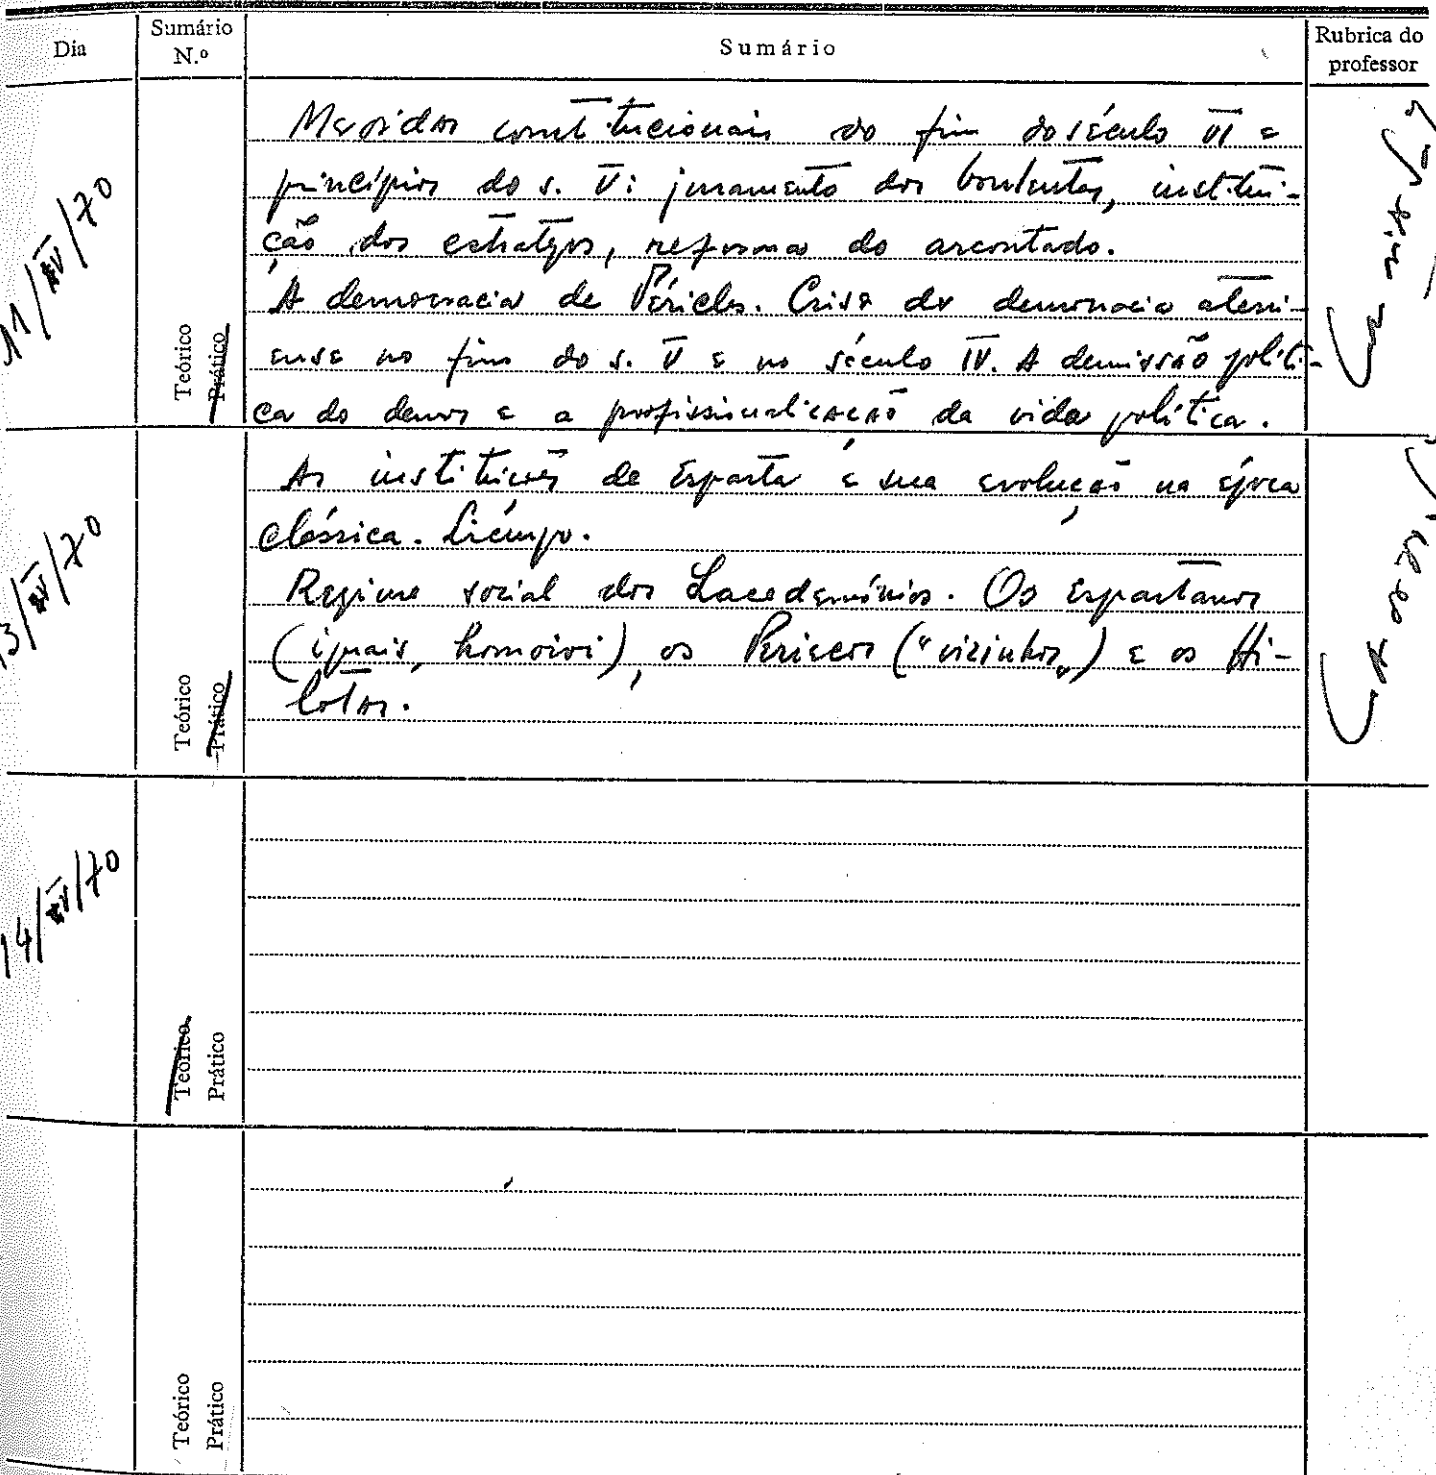 Dia
Sumário N.º
Sumário
Rubrica do professor
11/ /70
Teórico
Prático
Medidas constitucionais do fim do século VI e
princípios do s. V: juramento dos bouleutas, institui-
ção dos estrategos, reforma do arcontado.
A democracia de Péricles. Crise da democracia ateni-
ense no fim do s. V e no século IV. A demissão políti-
ca do demos e a profissionalização da vida política.
13/ /70
Teórico
Prático
As instituições de Esparta e sua evolução na época
clássica. Licurgo.
Regime social dos Lacedemónios. Os Espartanos
(iguais, homoioi), os Periecos ("vizinhos") e os Hi-
lotas.
14/ /70
Teórico
Prático
Teórico
Prático